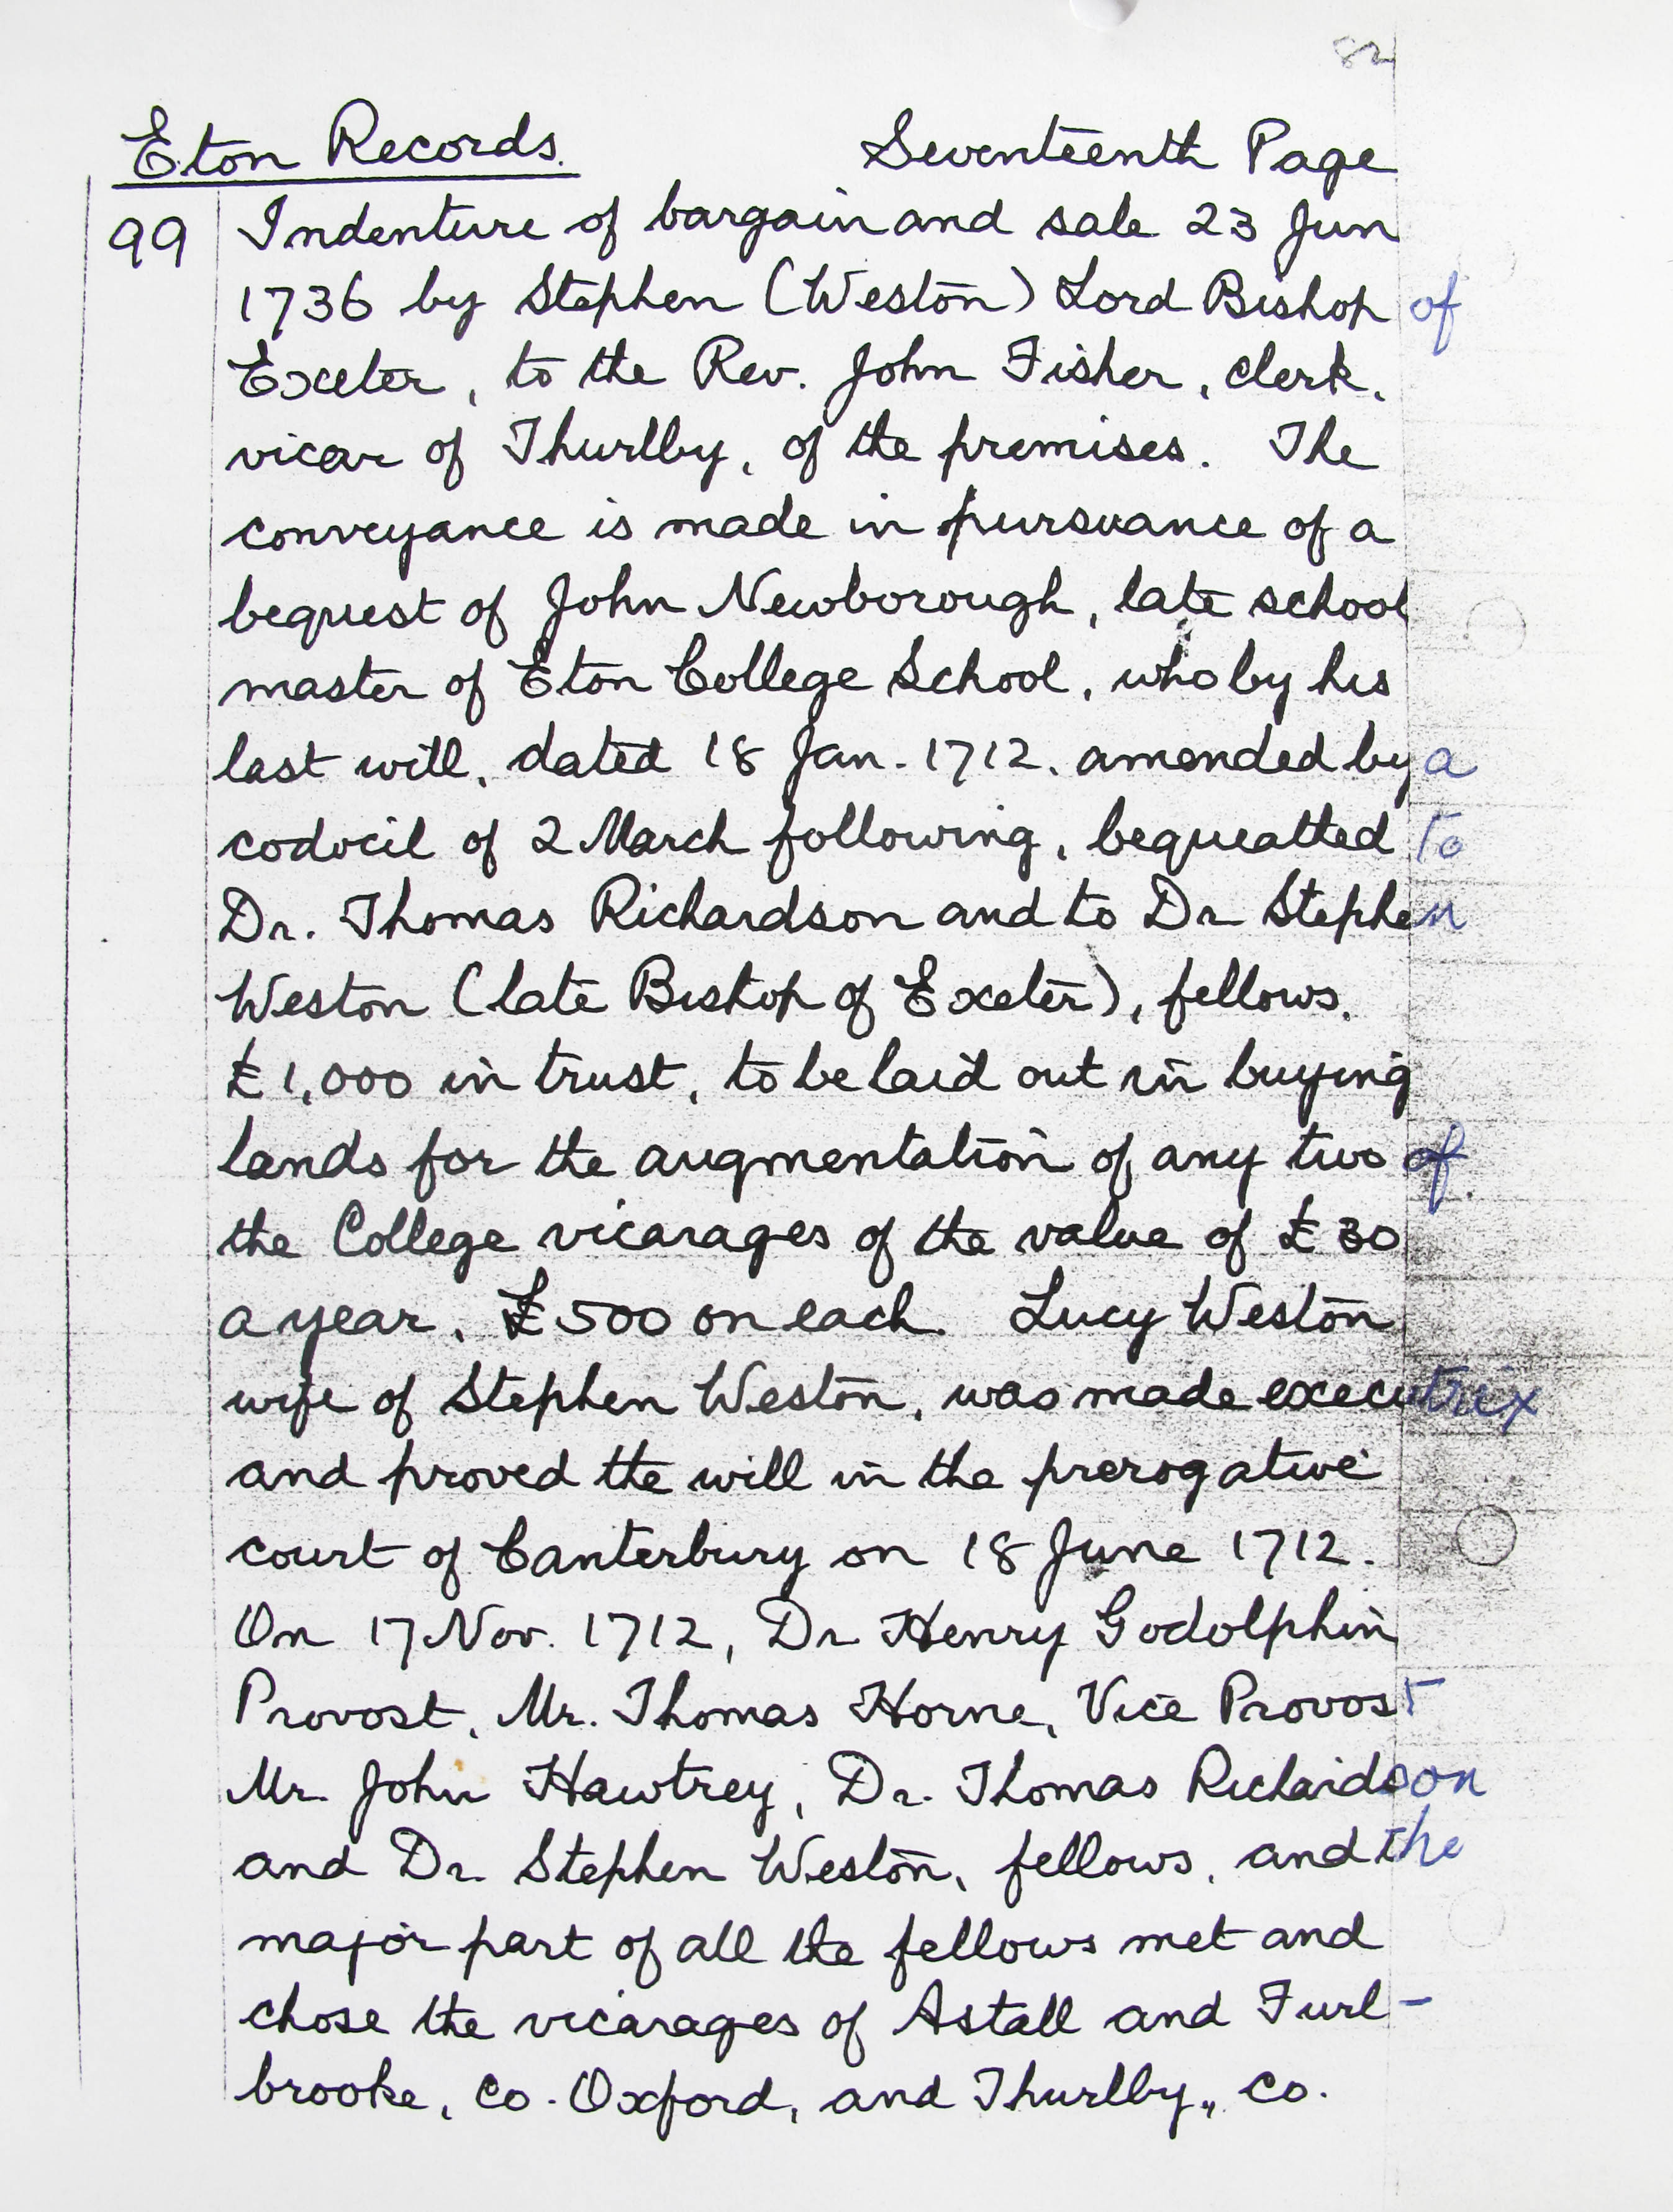 82
Eton Records. Seventeenth Page
99 Indenture of bargain and sale 23 Jun
1736 by Stephen (Weston) Lord Bishop of
Exeter, to the Rev. John Fisher, clerk,
vicar of Thurlby, of the premises. The
conveyance is made in pursuance of a
bequest of John Newborough, late school
master of Eton College School, who by his
last will, dated 18 Jan. 1712, amended by a
codocil of 2 March following, bequeatted to
Dr. Thomas Richardson and to Dr Stephen
Weston (late Bishop of Exeter), fellows,
£1,000 in trust, to be laid out in buying
lands for the augmentation of any two of
the College vicarages of the value of £30
a year, £500 on each. Lucy Weston
wife of Stephen Weston, was made executrix
and proved the will in the prerogative
court of Canterbury on 18 June 1712.
On 17 Nov. 1712, Dr Henry Godolphin
Provost, Mr. Thomas Horne, Vice Provost
Mr. John Hawtrey, Dr. Thomas Richardson
and Dr. Stephen Weston, fellows, and the
major part of all the fellows met and
chose the vicarages of Astall and Furl-
brooke, Co. Oxford, and Thurlby,, Co.